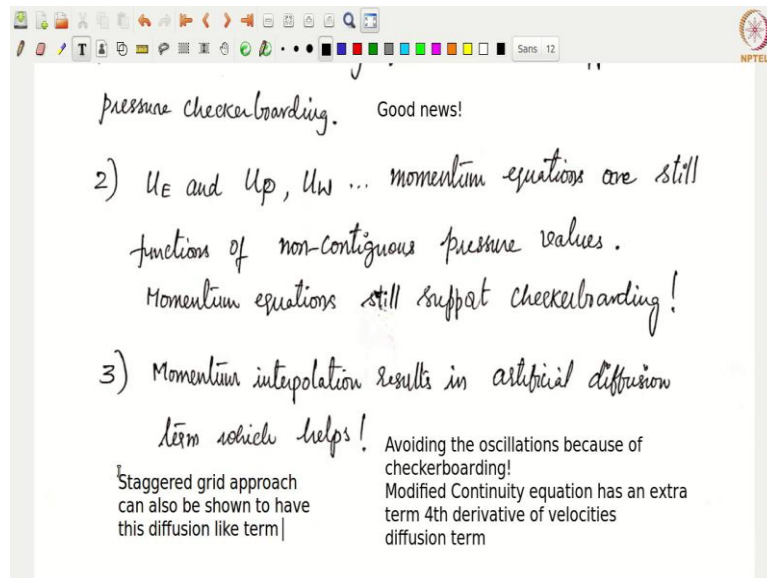 Sans 12
NPTEL
pressure checkerboarding. Good news!
2) UE and UP, UW ... momentum equations are still
functions of non-contiguous pressure values.
Momentum equations still support checkerboarding!
3) Momentum interpolation results in artificial diffusion
term which helps!
Avoiding the oscillations because of
checkerboarding!
Modified Continuity equation has an extra
term 4th derivative of velocities
diffusion term
Staggered grid approach
can also be shown to have
this diffusion like term